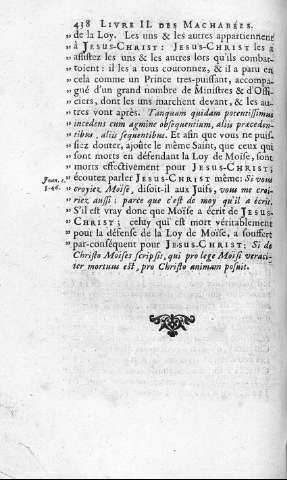 438 LIVRE II. DES MACHABÉES.
„ de la Loy. Les uns & les autres appartiennent
„ à JESUS-CHRIST : JESUS-CHRIST les a
„ assistez les uns & les autres lors qu'ils combat-
„ toient : il les a tous couronnez, & il a paru en
„ cela comme un Prince tres-puissant, accompa-
„ gné d'un grand nombre de Ministres & d'Offi-
„ ciers, dont les uns marchent devant, & les au-
„ tres vont aprés. Tanquam quidam potentissimus
„ incedens cum agmine obsequentium, aliis præceden-
„ tibus, aliis sequentibus. Et afin que vous ne puis-
„ siez douter, ajoûte le même Saint, que ceux qui
„ sont morts en défendant la Loy de Moïse, sont
„ morts effectivement pour JESUS-CHRIST ;
Joan. „ écoutez parler JESUS-CHRIST même : Si vous
5.46. „ croyiez Moïse, disoit-il aux Juifs, vous me croi-
„ riez aussi ; parce que c'est de moy qu'il a écrit.
„ S'il est vray donc que Moïse a écrit de JESUS-
„ CHRIST ; celuy qui est mort véritablement
„ pour la défense de la Loy de Moïse, a souffert
„ par-conséquent pour JESUS-CHRIST : Si de
„ Christo Moises scripsit, qui pro lege Moisi veraci-
„ ter mortuus est, pro Christo animam posuit.